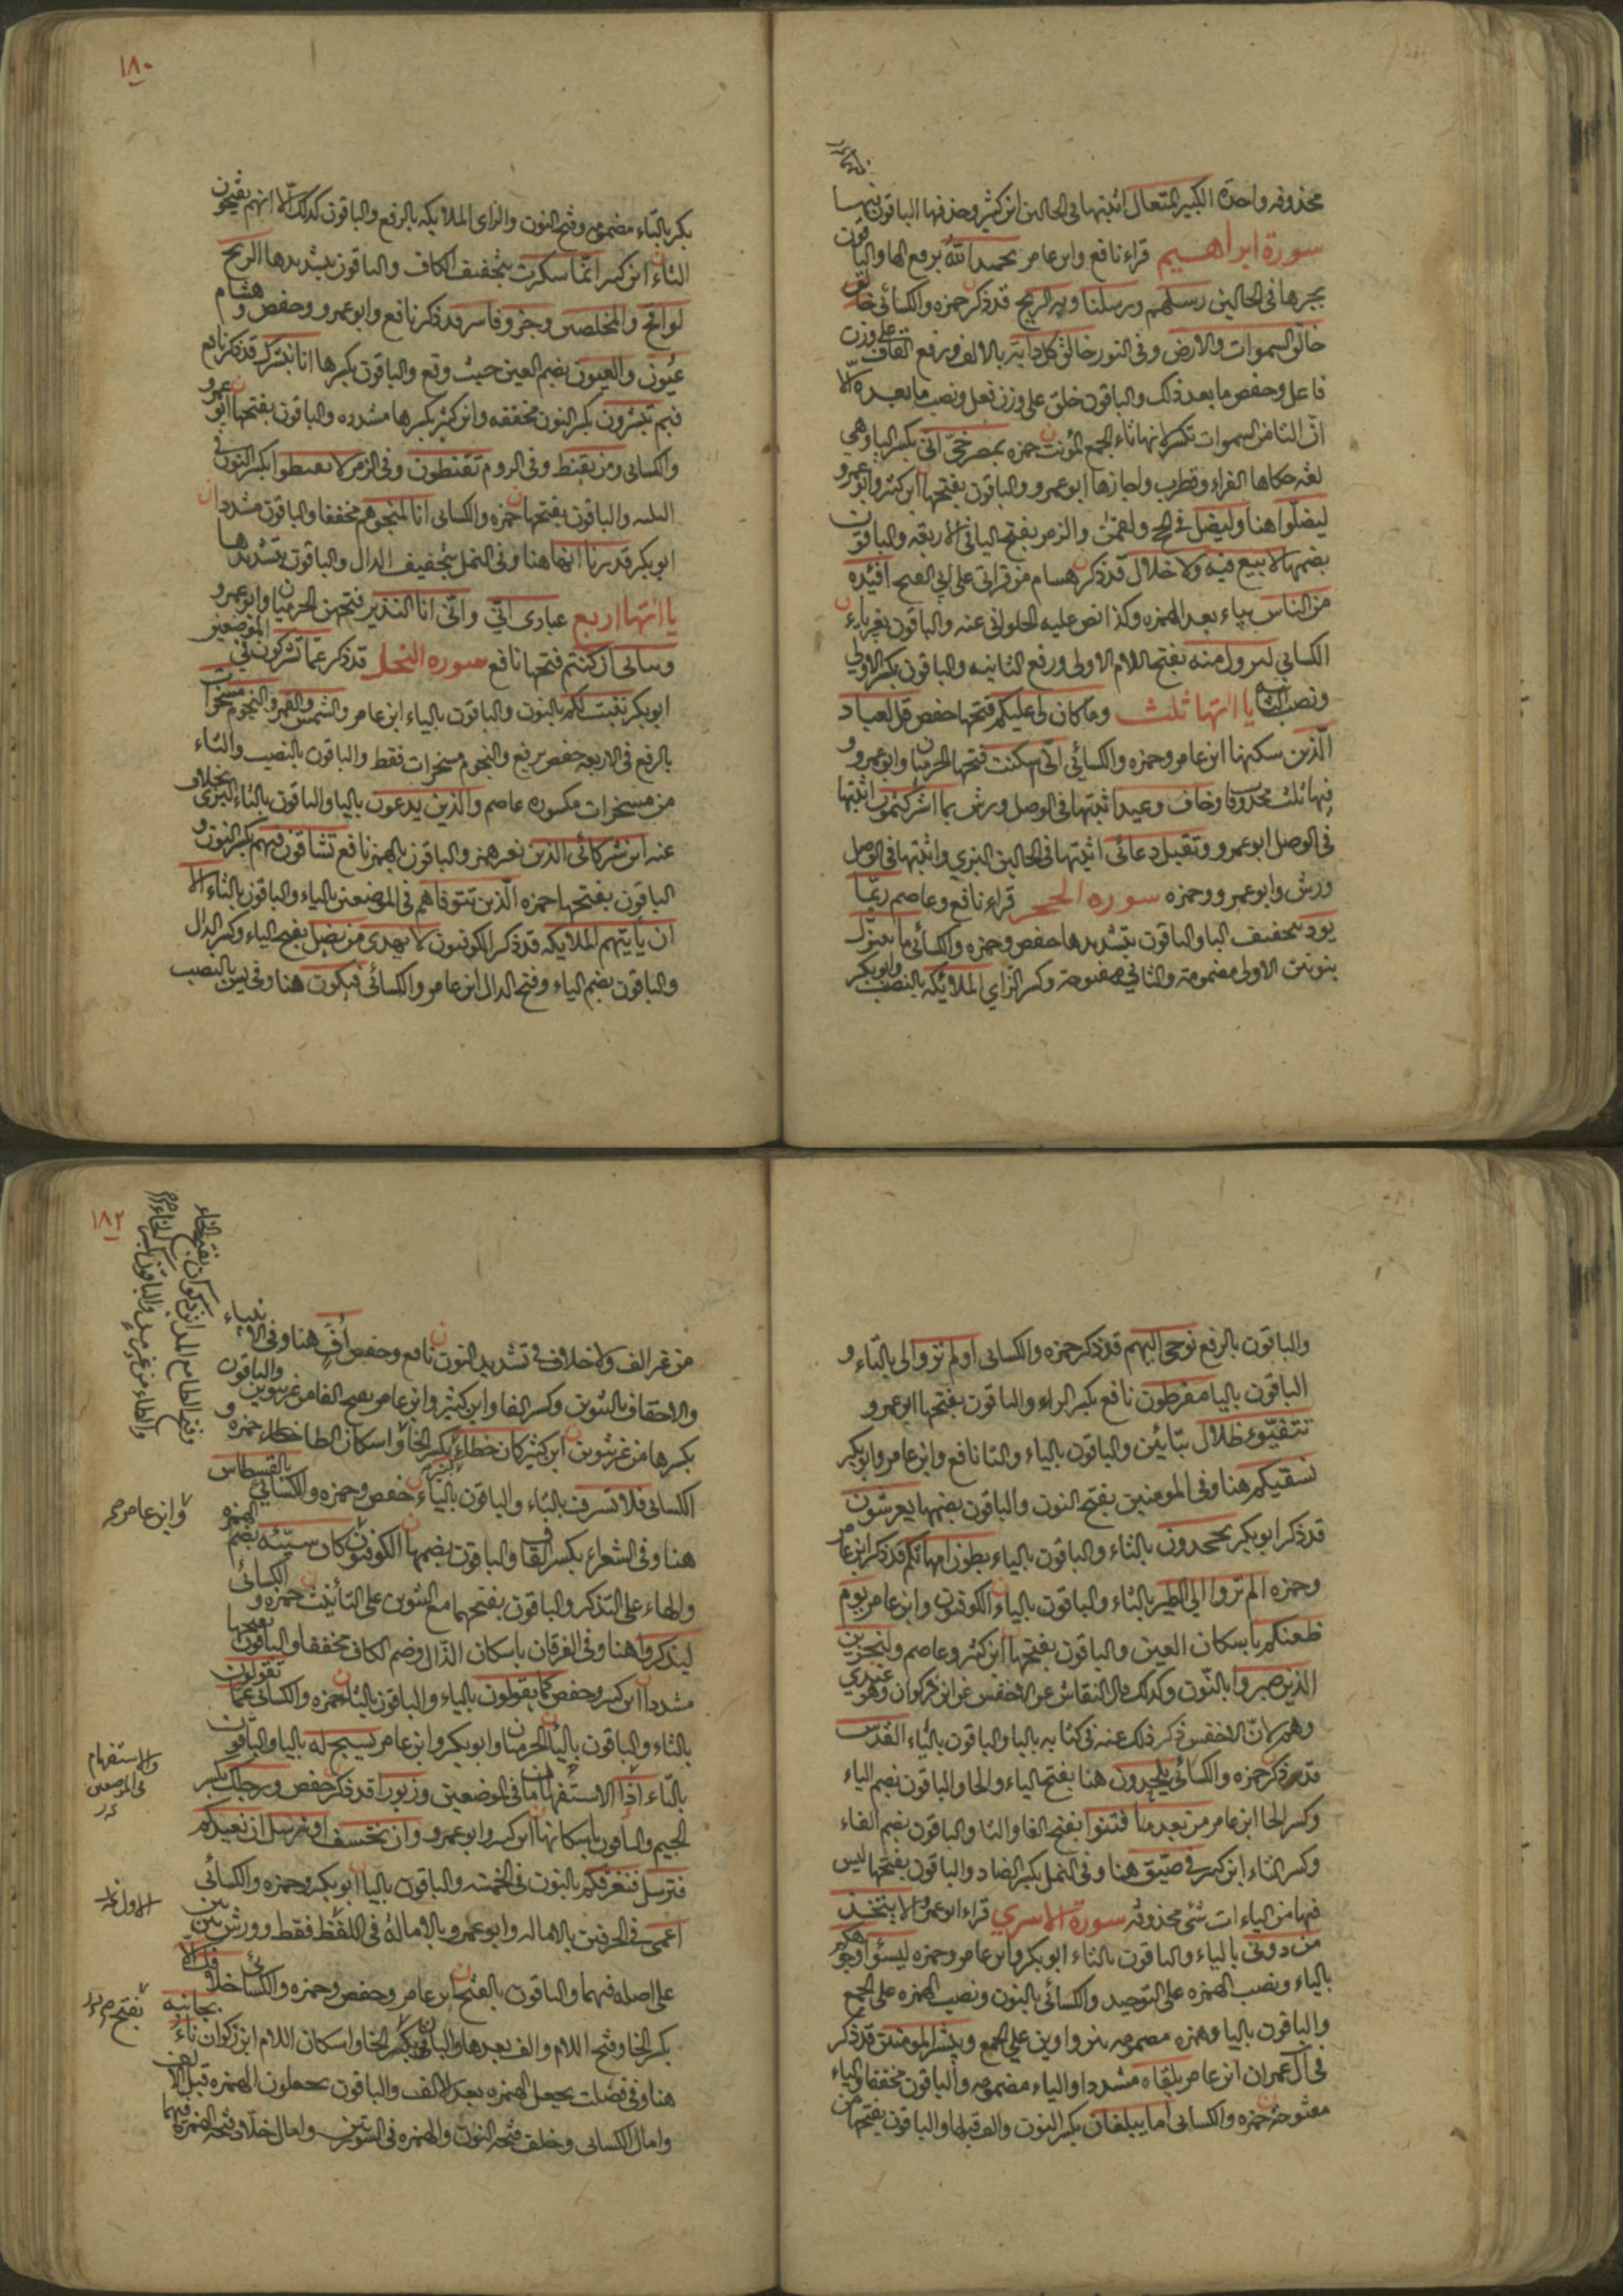 محذوفه واحدة الكبير المتعال اثبتها في الحالين ابن كثير وحذفها الباقون فيها
سورة ابراهيم قراء نافع وابن عامر الحميد الله برفع الها والباقون
بجرها في الحالين رسلهم ورسلنا وبه الريح قد ذكر حمزه والكسائي خالق
خالق السموات والارض وفي النور خالق كل دابة بالالف ورفع القاف على وزن
فاعل وحفض ما بعد ذلك والباقون خلق على وزن فعل ونصب ما بعده الا
ان التا من السموات تكسر لانها تاء الجمع المؤنث حمزه بمصرخي اني بكسر اليا وهي
لغه حكاها الفراء وقطرب واجازها ابو عمرو والباقون بفتحها ابن كثير وابو عمرو
ليضلوا هنا وليضل في الحج ولقمن والزمر بفتح اليا في الاربعه والباقون
بضمها لا بيع فيه ولا خلال قد ذكر هسام من قراتي على ابي الفتح افئيده
من الناس بياء بعد الهمزه وكذا نص عليه الحلواني عنه والباقون بغير ياء
الكسائي لتزول منه بفتح اللام الاولى ورفع الثانيه والباقون بكسر الاولى
ونصب الثانيه يااتها ثلث وما كان لي عليكم فتحها حفص قل لعباد
الذين سكنها ابن عامر وحمزه والكسائي اني اسكنت فتحها الحرميان وابو عمرو و
فيها ثلث محذوفا وخاف وعيد اثبتها في الوصل ورش بما اشركتمون اثبتها
في الوصل ابو عمرو وتقبل دعائي اثبتها في الحالين البزي واثبتها في الوصل
ورش وابو عمرو وحمزه سوره الحجر قراء نافع وعاصم ربما
يود بتخفيف البا والباقون بتشديدها حفص وحمزه والكسائي ما ننزل
بنونين الاولى مضمومة والثاني مفتوحة وكسر الزاي الملائكه بالنصب وابو بكر
١٨٠
بكر بالتاء مضمومه وفتح النون والزاى الملايكه بالرفع والباقون كذلك الا انهم يفتحون
التاء ابن كسر انما سكرت بتخفيف الكاف والباقون بتشديدها الريح
لواقح والمخلصين وجزو فاسر قد ذكر نافع وابو عمرو وحفص وهشام
عيون والعيون بضم العين حيث وقع والباقون بكسرها انا نبشرك قد ذكر نافع
فبم تبشرون بكسر النون مخففه وابن كثير بكسرها مشدده والباقون بفتحها ابو عمرو
والكسائى ومن يقنط وفي الروم تقنطون وفي الزمر لا تقنطوا بكسر النون في
الثلثه والباقون بفتحها حمزه والكسائى انا لمنجوهم مخففا والباقون مشددا
ابو بكر قدرنا انها هنا وفي النمل بتخفيف الدال والباقون بتشديدها
يااتها اربع عبادى اني واني انا النذير فتحهن الحرميان وابو عمرو
وبناتى ان كنتم فتحها نافع سوره النحل قد ذكر عما تشركون في الموضعين
ابو بكر ننبت لكم بالنون والباقون بالياء ابن عامر والشمس والقمر والنجوم مسخرات
بالرفع في الاربعه حفص برفع والنجوم مسخرات فقط والباقون بالنصب والتاء
من مسخرات مكسوره عاصم والذين يدعون باليا والباقون بالتاء البزى بخلاف
عنه اين شركائى الذين بغير همز والباقون بالهمز نافع تشاقون فيهم بكسر النون و
الباقون بفتحها حمزه الذين تتوفاهم في الموضعين بالياء والباقون بالتاء الا
ان يأتيهم الملايكه قد ذكر الكوفيون لا يهدى من يضل بفتح الياء وكسر الدال
والباقون بضم الياء وفتح الدال ابن عامر والكسائي فيكون هنا وفي يس بالنصب
والباقون بالرفع نوحى اليهم قد ذكر حمزه والكسائى اولم تروا الى بالتاء و
الباقون باليا مفرطون نافع بكسر الراء والباقون بفتحها ابو عمرو
تتفيؤ ظلال بتائين والباقون بالياء والتا نافع وابن عامر وابو بكر
نسقيكم هنا وفي المومنين بفتح النون والباقون بضمها يعرشون
قد ذكر ابو بكر يجحدون بالتاء والباقون بالياء بطون امهاتكم قد ذكر ابن عامر
وحمزه الم تروا الى الطير بالتاء والباقون بالياء الكوفيون وابن عامر يوم
ظعنكم باسكان العين والباقون بفتحها ابن كثير وعاصم ولنجزين
الذين صبروا بالنون وكذلك قال النقاش عن الاخفش عن ابن ذكوان وهو عندي
وهم لان الاخفش ذكر ذلك عنه في كتابه باليا والباقون بالياء القدس
قد ذكر حمزه والكسائي يلحدون هنا بفتح الياء والحا والباقون بضم الياء
وكسر الحا ابن عامر من بعد ما فتنوا بفتح الفا والتا والباقون بضم الفاء
وكسر التاء ابن كثير في ضيق هنا وفي النمل بكسر الضاد والباقون بفتحها ليس
فيها من الياءات شئ محذوفه سورة الاسرى قراء ابو عمرو الا يتخذ
من دوني بالياء والباقون بالتاء ابو بكر وابن عامر وحمزه ليسوا وجوهكم
بالياء ونصب الهمزه على التوحيد والكسائي بالنون ونصب الهمزه على الجمع
والباقون باليا وهمزه مضمومه بين واوين على الجمع ويبشر المومنين قد ذكر
في آل عمران ابن عامر يلقاه مشددا والياء مضمومه والباقون مخففا والياء
مفتوحه حمزه والكسائي اما يبلغان بكسر النون والف قبلها والباقون بفتحها من
١٨٢
من غير الف ولا خلاف في تشديد النون نافع وحفص اف هنا وفي الانبياء
والاحقاف بالتنوين وكسر الفا وابن كثير وابن عامر بفتح الفا من غير تنوين والباقون
بكسرها من غير تنوين ابن كثير كان خطاء بكسر الخاء واسكان الطا حمزه و
الكسائى فلا تسرف بالتاء والباقون بالياء حفص وحمزه والكسائي بالقسطاس
هنا وفي الشعراء بكسر القاف والباقون بضمها الكوفيون كان سيئه بضم الهمزه
والهاء على التذكير والباقون بفتحهما مع التنوين على التأنيث حمزه و الكسائي
ليذكروا هنا وفي الفرقان باسكان الذال وضم الكاف مخففا والباقون بفتحها
مشددا ابن كسر وحفص كما يقولون بالياء والباقون بالتاء حمزه والكسائى عما تقولون
بالتاء والباقون بالياء الحرميان وابو بكر وابن عامر يسبح له باليا والباقون
بالتاء اذا الاستفهامان في الموضعين وزبورا قد ذكر حفص ورجلك بكسر
الجيم والباقون باسكانها ابن كسر وابو عمرو وان نخسف او نرسل ان نعيدكم
فنرسل فنغرقكم بالنون في الخمسه والباقون باليا ابو بكر وحمزه والكسائى
اعمى في الحرفين بالاماله وابو عمرو بالامالة في اللفظ فقط وورش بين بين
على اصله فيهما والباقون بالفتح ابن عامر وحفص وحمزه والكسائي خلافك الا
بكسر الخا وفتح اللام والف بعدها والباقون بفتح الخا واسكان اللام ابن ذكوان ناء بجانبه
هنا وفي فصلت يجعل الهمزه بعد الالف والباقون يجعلون الهمزه قبل الالف
وامال الكسائى وخلف فتحه النون والهمزه في السورتين وامال خلاد فتحه الهمزه فيهما
وابن عامر
والاستفهام
في الموضعين
الاول
بفتح